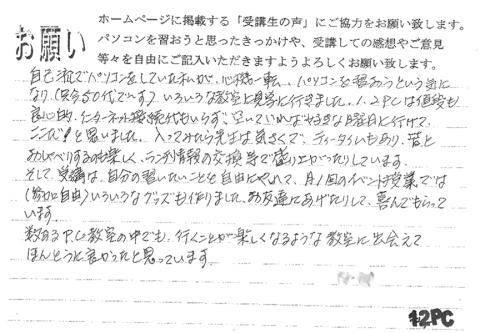 お願い
ホームページに掲載する「受講生の声」にご協力をお願い致します。
パソコンを習おうと思ったきっかけや、受講しての感想やご意見
等々を自由にご記入いただきますようよろしくお願い致します。
自己流でパソコンをしていた私が、心機一転、パソコンを習おうという気に
なり、(只今50代です) いろいろな教室と見学に行きました。1.2PCは値段も
良心的、インターネット接続代もいらず、空いていれば好きな曜日に行けて、
ここだ!と思いました。入ってみたら先生は気さくで、ティータイムもあり、皆と
おしゃべりするのも楽しく、ランチ情報の交換等で盛り上がったりしています。
そして、受講は、自分の習いたいことを自由にやれて、月1回のイベント授業では
(参加自由)いろいろなグッズも作りました。お友達にあげたりして、喜んでもらって
います。
数あるP.C教室の中でも、行くことが楽しくなるような教室に出会えて
ほんとうに良かったと思っています。
12PC